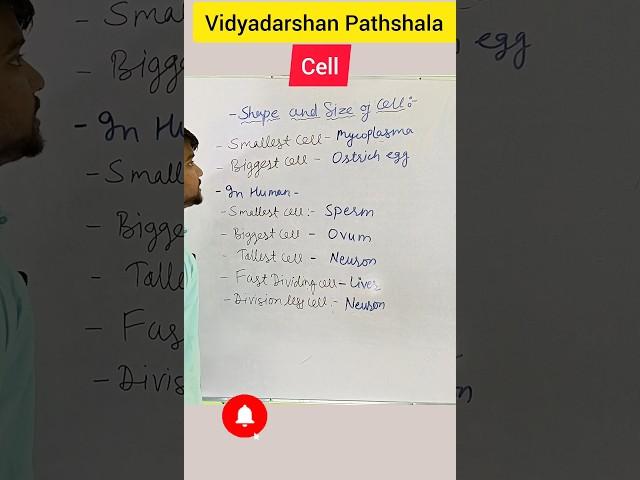 Vidyadarshan Pathshala
Cell
- Shape and Size of Cell:-
- Smallest Cell - Mycoplasma
- Biggest Cell - Ostrich egg
- In Human -
- Smallest cell:- Sperm
- Biggest Cell - Ovum
- Tallest Cell - Neuron
- Fast Dividing cell - Liver
- Division less cell:- Neuron